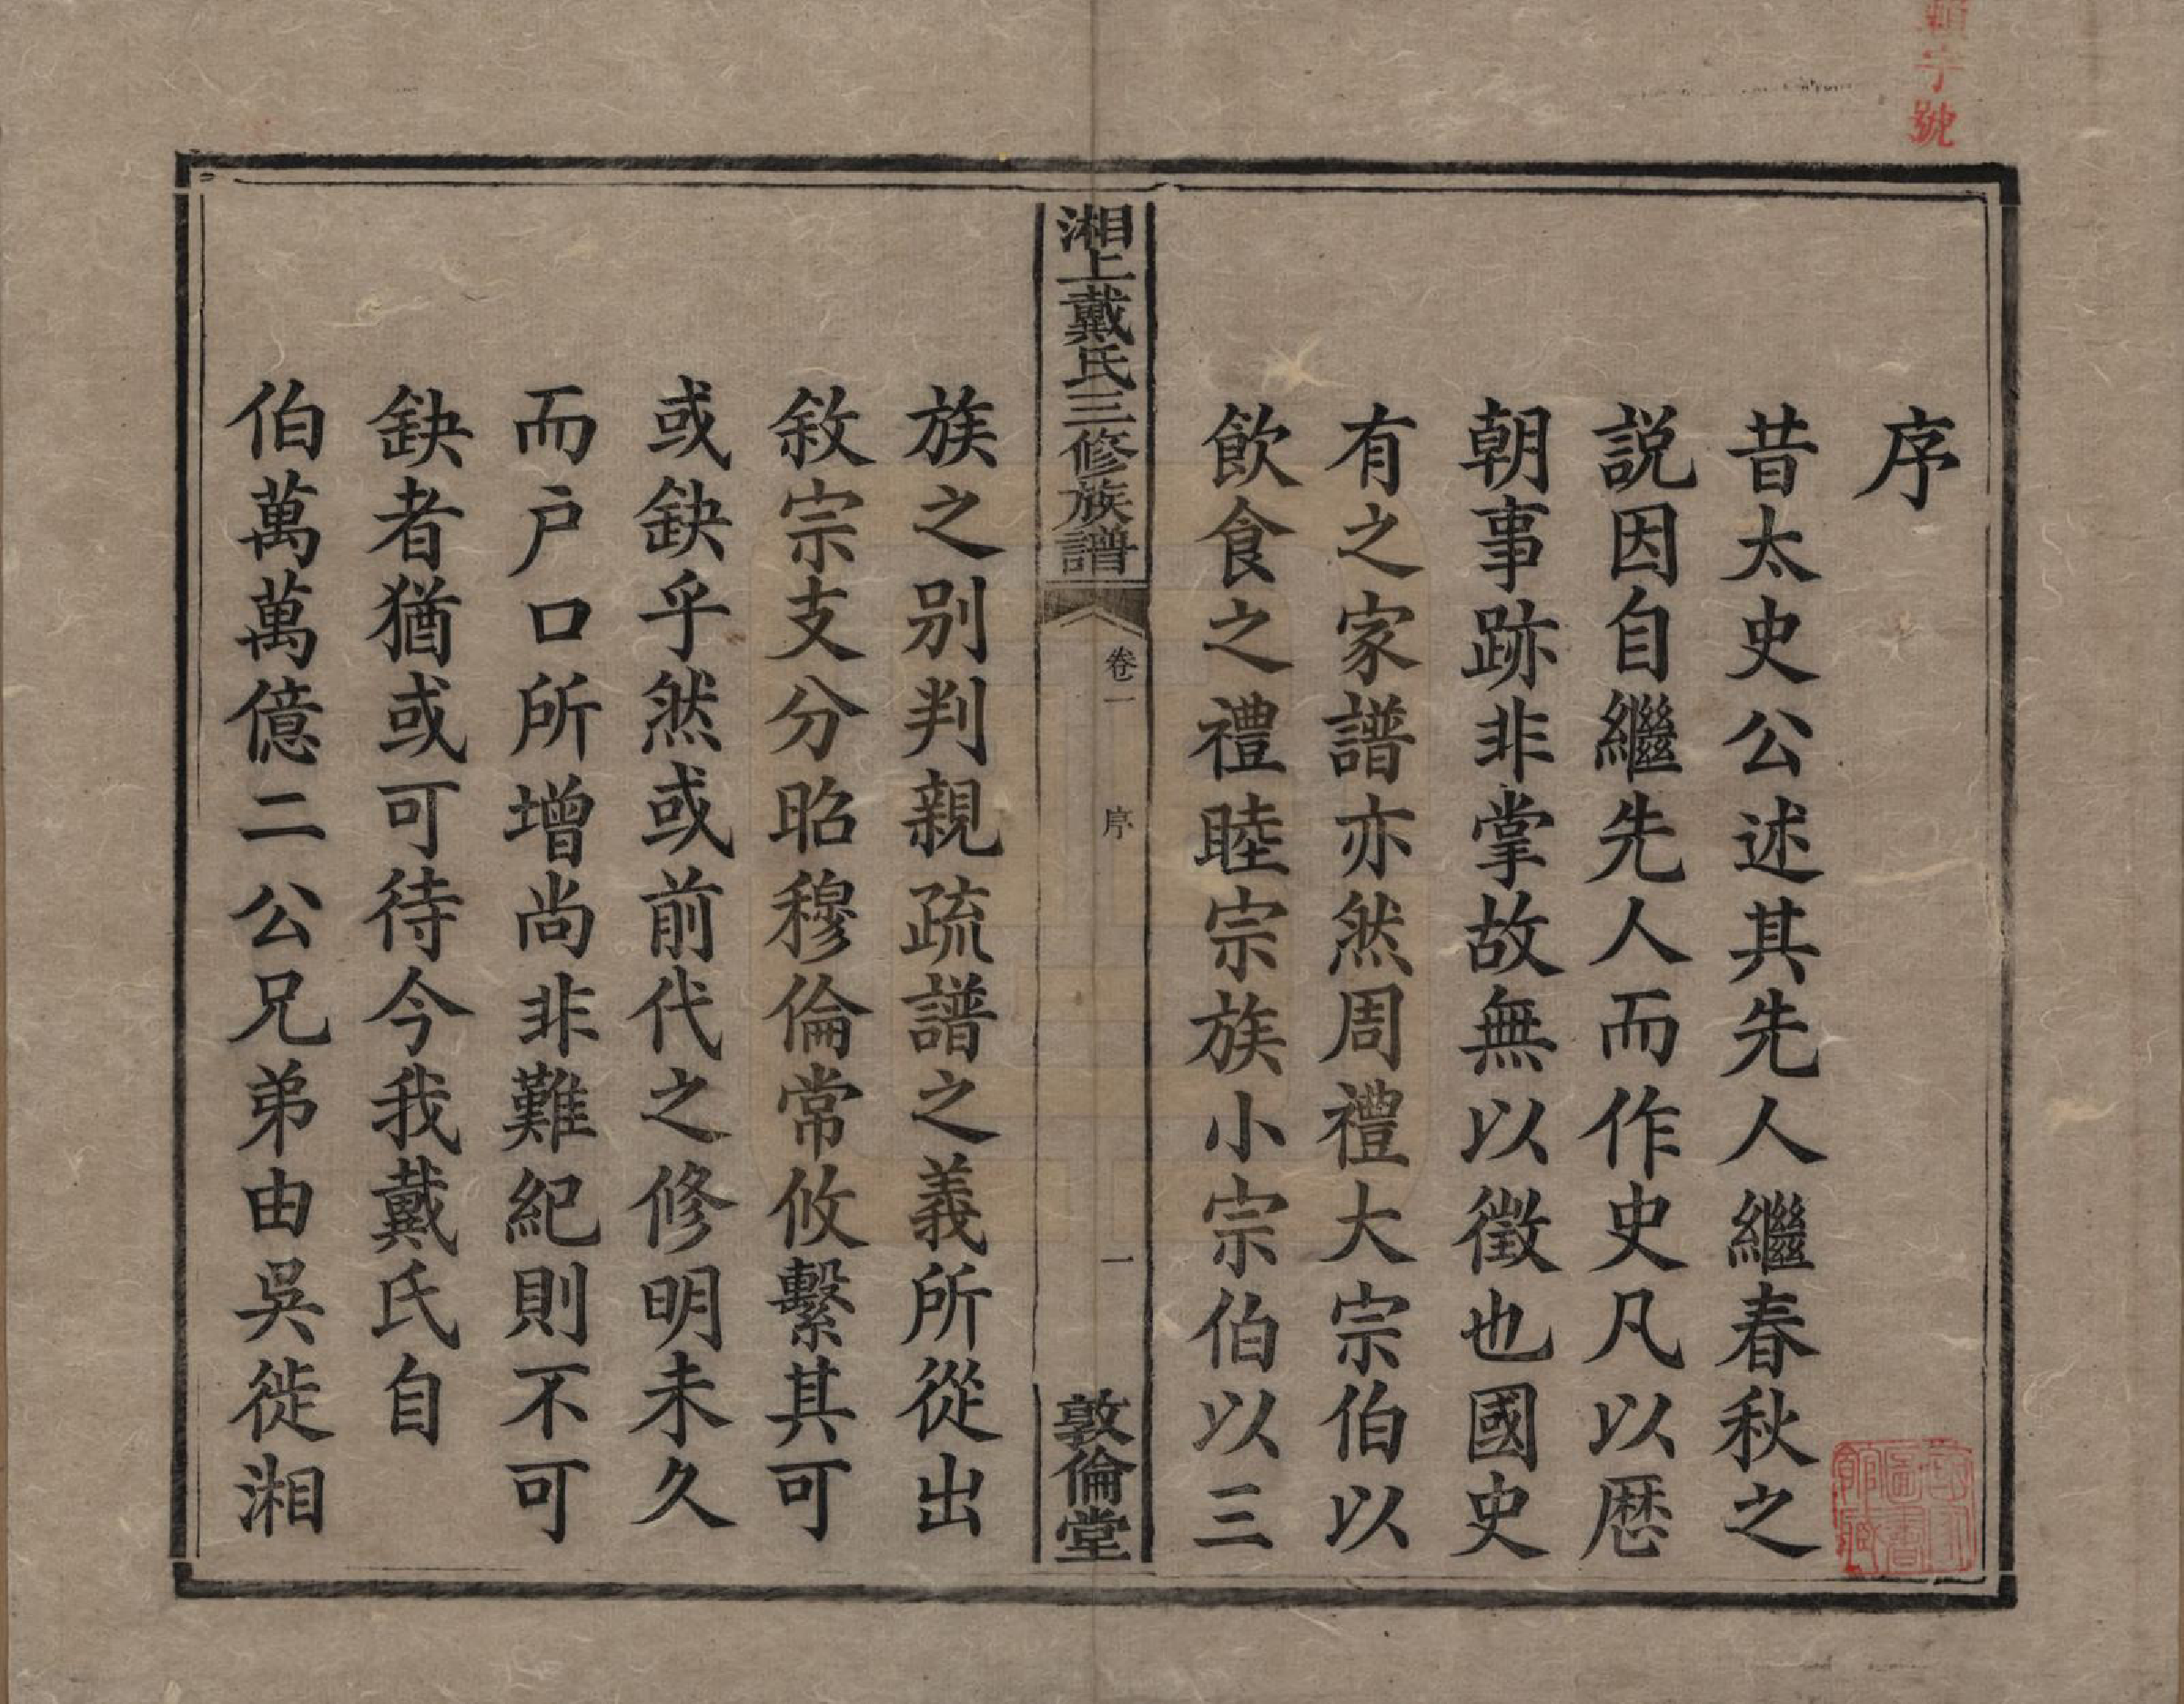 序
昔太史公述其先人繼春秋之
説因自繼先人而作史凡以厯
朝事跡非掌故無以徵也國史
有之家譜亦然周禮大宗伯以
飲食之禮睦宗族小宗伯以三
湘上戴氏三修族譜
卷一
序
一
敦倫堂
族之别判親疏譜之義所從出
敘宗支分昭穆倫常攸繫其可
或缺乎然或前代之修明未久
而户口所增尚非難紀則不可
缺者猶或可待今我戴氏自
伯萬萬億二公兄弟由吳徙湘
字號